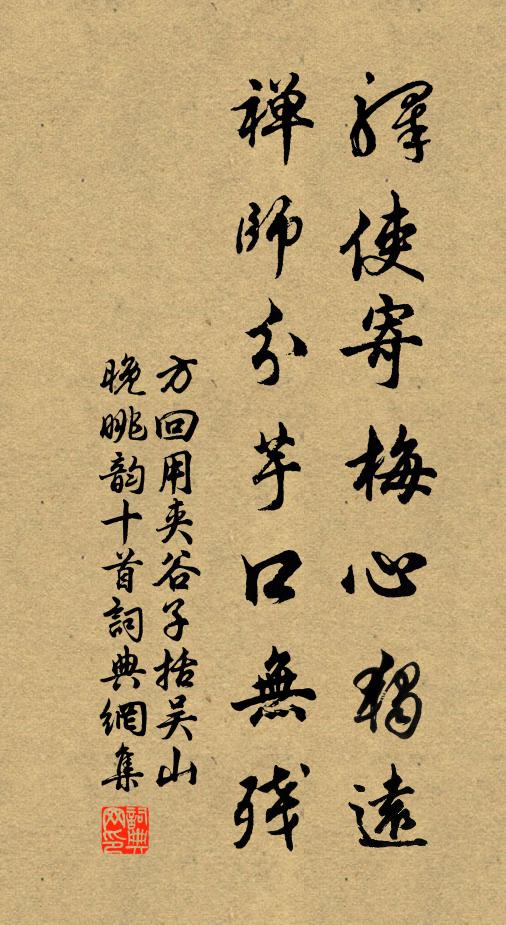 驛使寄梅心獨遠
禪師分芋口無殘
方回用夾谷子括吳山
晚眺韵十首詞典網集
詞典網印